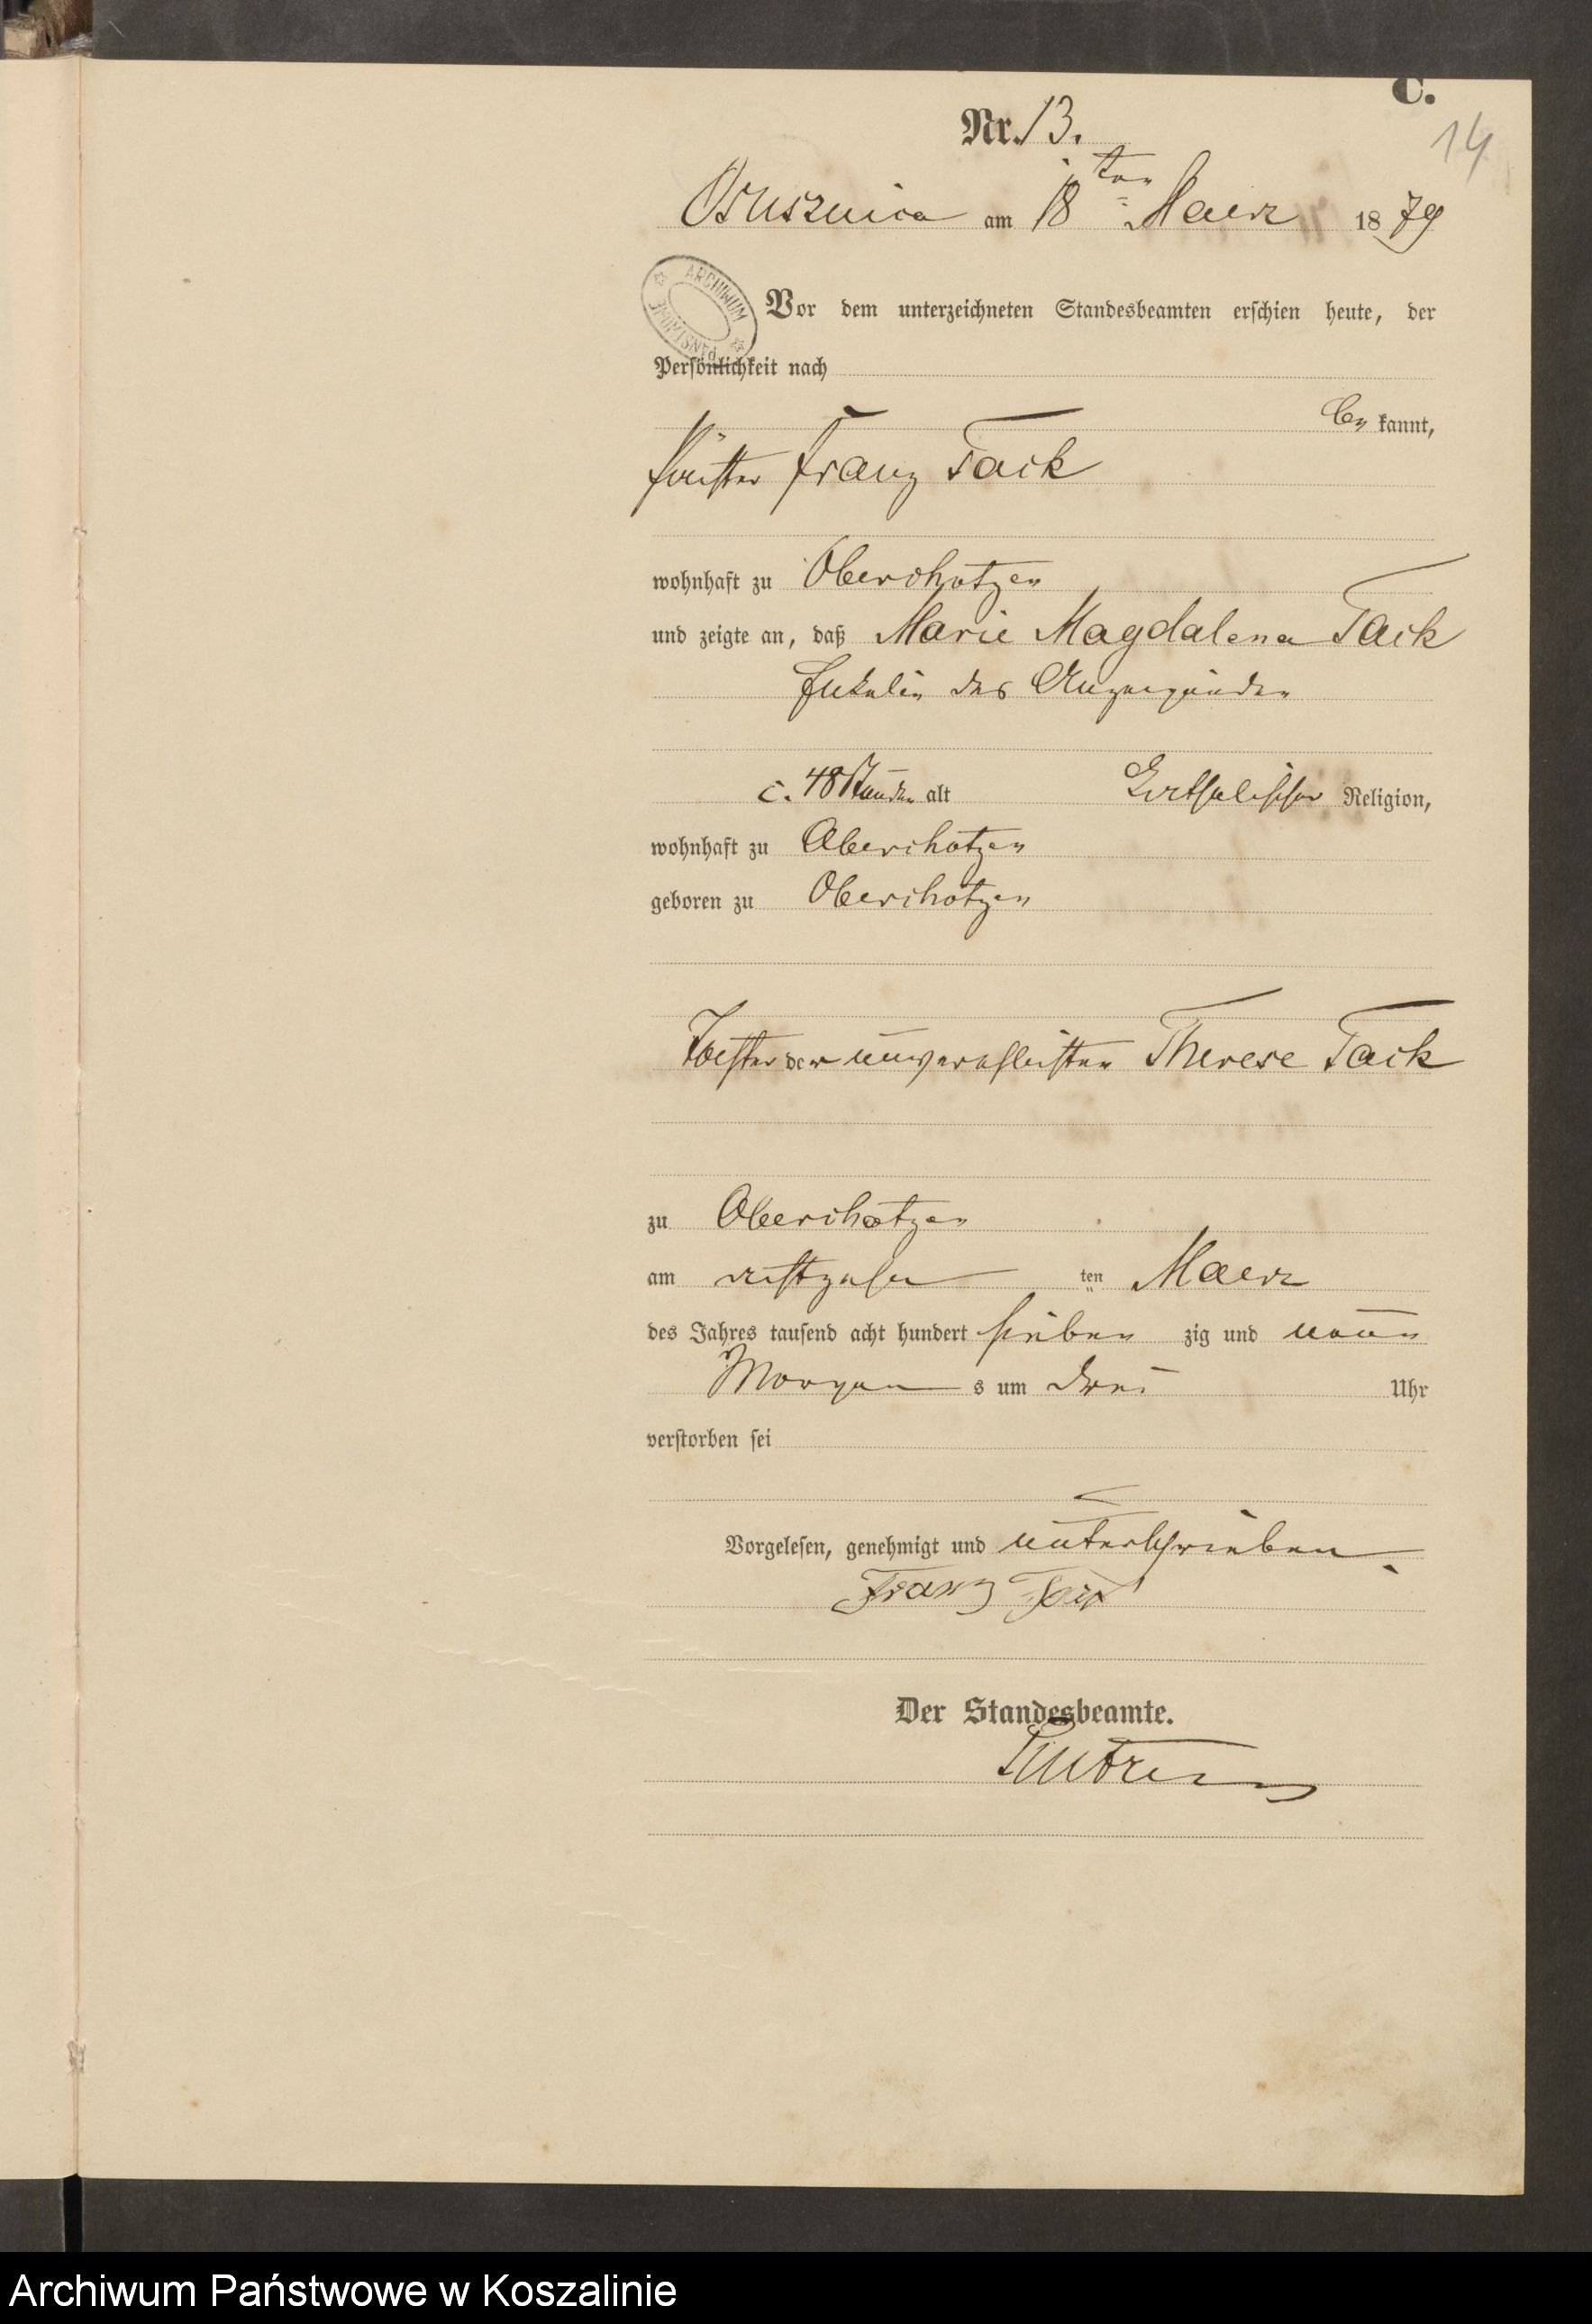 C.
Nr. 13.
14
Osusznica am 18ten Maerz 1879
ARCHIWUM PAŃSTWOWE
Vor dem unterzeichneten Standesbeamten erschien heute, der
Persönlichkeit nach
be kannt,
Franz Tack
wohnhaft zu Oberchotzen
und zeigte an, daß Marie Magdalena Tack
Enkelin des Anzeigenden
c. 48 Stunden alt Katholischer Religion,
wohnhaft zu Oberchotzen
geboren zu Oberchotzen
Tochter der unverehelichten Therese Tack
zu Oberchotzen
am achtzehn ten Maerz
des Jahres tausend acht hundert sieben zig und neun
Morgen s um drei Uhr
verstorben sei
Vorgelesen, genehmigt und unterschrieben.
Franz
Der Standesbeamte.
Archiwum Państwowe w Koszalinie